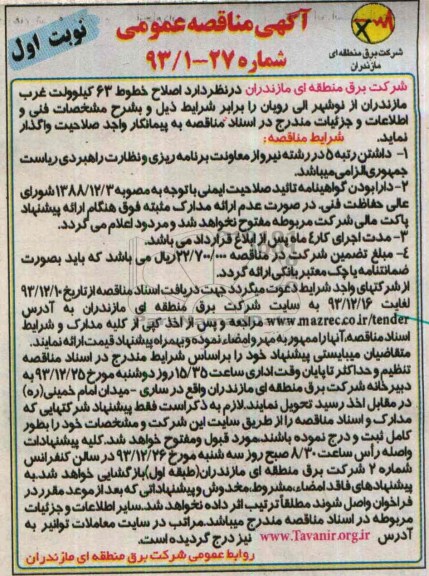 آگهی مناقصه عمومی
شماره ۲۷-۹۳/۱
نوبت اول
شرکت برق منطقه ای
مازندران
شرکت برق منطقه ای مازندران درنظردارد اصلاح خطوط ۶۳ کیلوولت غرب
مازندران از نوشهر الی رویان را برابر شرایط ذیل و بشرح مشخصات فنی و
اطلاعات و جزئیات مندرج در اسناد مناقصه به پیمانکار واجد صلاحیت واگذار
نماید. شرایط مناقصه:
۱- داشتن رتبه ۵ در رشته نیرو از معاونت برنامه ریزی و نظارت راهبردی ریاست
جمهوری الزامی میباشد.
۲- دارا بودن گواهینامه تائید صلاحیت ایمنی با توجه به مصوبه ۱۳۸۸/۱۲/۳ شورای
عالی حفاظت فنی. در صورت عدم ارائه مدارک مثبته فوق هنگام ارائه پیشنهاد
پاکت مالی شرکت مربوطه مفتوح نخواهد شد و مردود اعلام می گردد.
۳- مدت اجرای کار ٤ ماه پس از ابلاغ قرارداد می باشد.
٤- مبلغ تضمین شرکت در مناقصه ۲۲/۷۰۰/۰۰۰ ریال می باشد که باید بصورت
ضمانتنامه یا چک معتبر بانکی ارائه گردد.
از شرکتهای واجد شرایط دعوت میگردد جهت دریافت اسناد مناقصه از تاریخ ۹۳/۱۲/۱۰
لغایت ۹۳/۱۲/۱۶ به سایت شرکت برق منطقه ای مازندران به آدرس
www.mazrec.co.ir/tender مراجعه و پس از اخذ کپی از کلیه مدارک و شرایط
اسناد مناقصه، آنها را ممهور به مهر و امضاء نموده و بهمراه پیشنهاد قیمت ارائه نمایند.
متقاضیان میبایستی پیشنهاد خود را براساس شرایط مندرج در اسناد مناقصه
تنظیم و حداکثر تا پایان وقت اداری ساعت ۱۵/۳۵ روز دوشنبه مورخ ۹۳/۱۲/۲۵ به
دبیرخانه شرکت برق منطقه ای مازندران واقع در ساری -میدان امام خمینی(ره)
در مقابل اخذ رسید تحویل نمایند. لازم به ذکر است فقط پیشنهاد شرکتهایی که
مدارک و اسناد مناقصه را از طریق سایت این شرکت و مشخصات خود را بطور
کامل ثبت و درج نموده باشند، مورد قبول و مفتوح خواهد شد. کلیه پیشنهادات
واصله رأس ساعت ۸/۳۰ صبح روز سه شنبه مورخ ۹۳/۱۲/۲۶ در سالن کنفرانس
شماره ۲ شرکت برق منطقه ای مازندران (طبقه اول) بازگشایی خواهد شد. به
پیشنهادهای فاقد امضاء، مشروط، مخدوش و پیشنهاداتی که بعد از موعد مقرر در
فراخوان واصل شوند مطلقا ترتیب اثر داده نخواهد شد. سایر اطلاعات و جزئیات
مربوطه در اسناد مناقصه مندرج میباشد. مراتب در سایت معاملات توانیر به
آدرس www.Tavanir.org.ir نیز درج گردیده است.
روابط عمومی شرکت برق منطقه ای مازندران